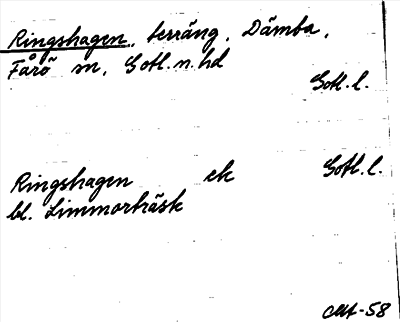 Ringshagen, terräng, Dämba,
Fårö sn, Gotl. n. hd
Gotl. l.
Ringshagen ek Gotl. l.
bl. Limmorträsk
-58